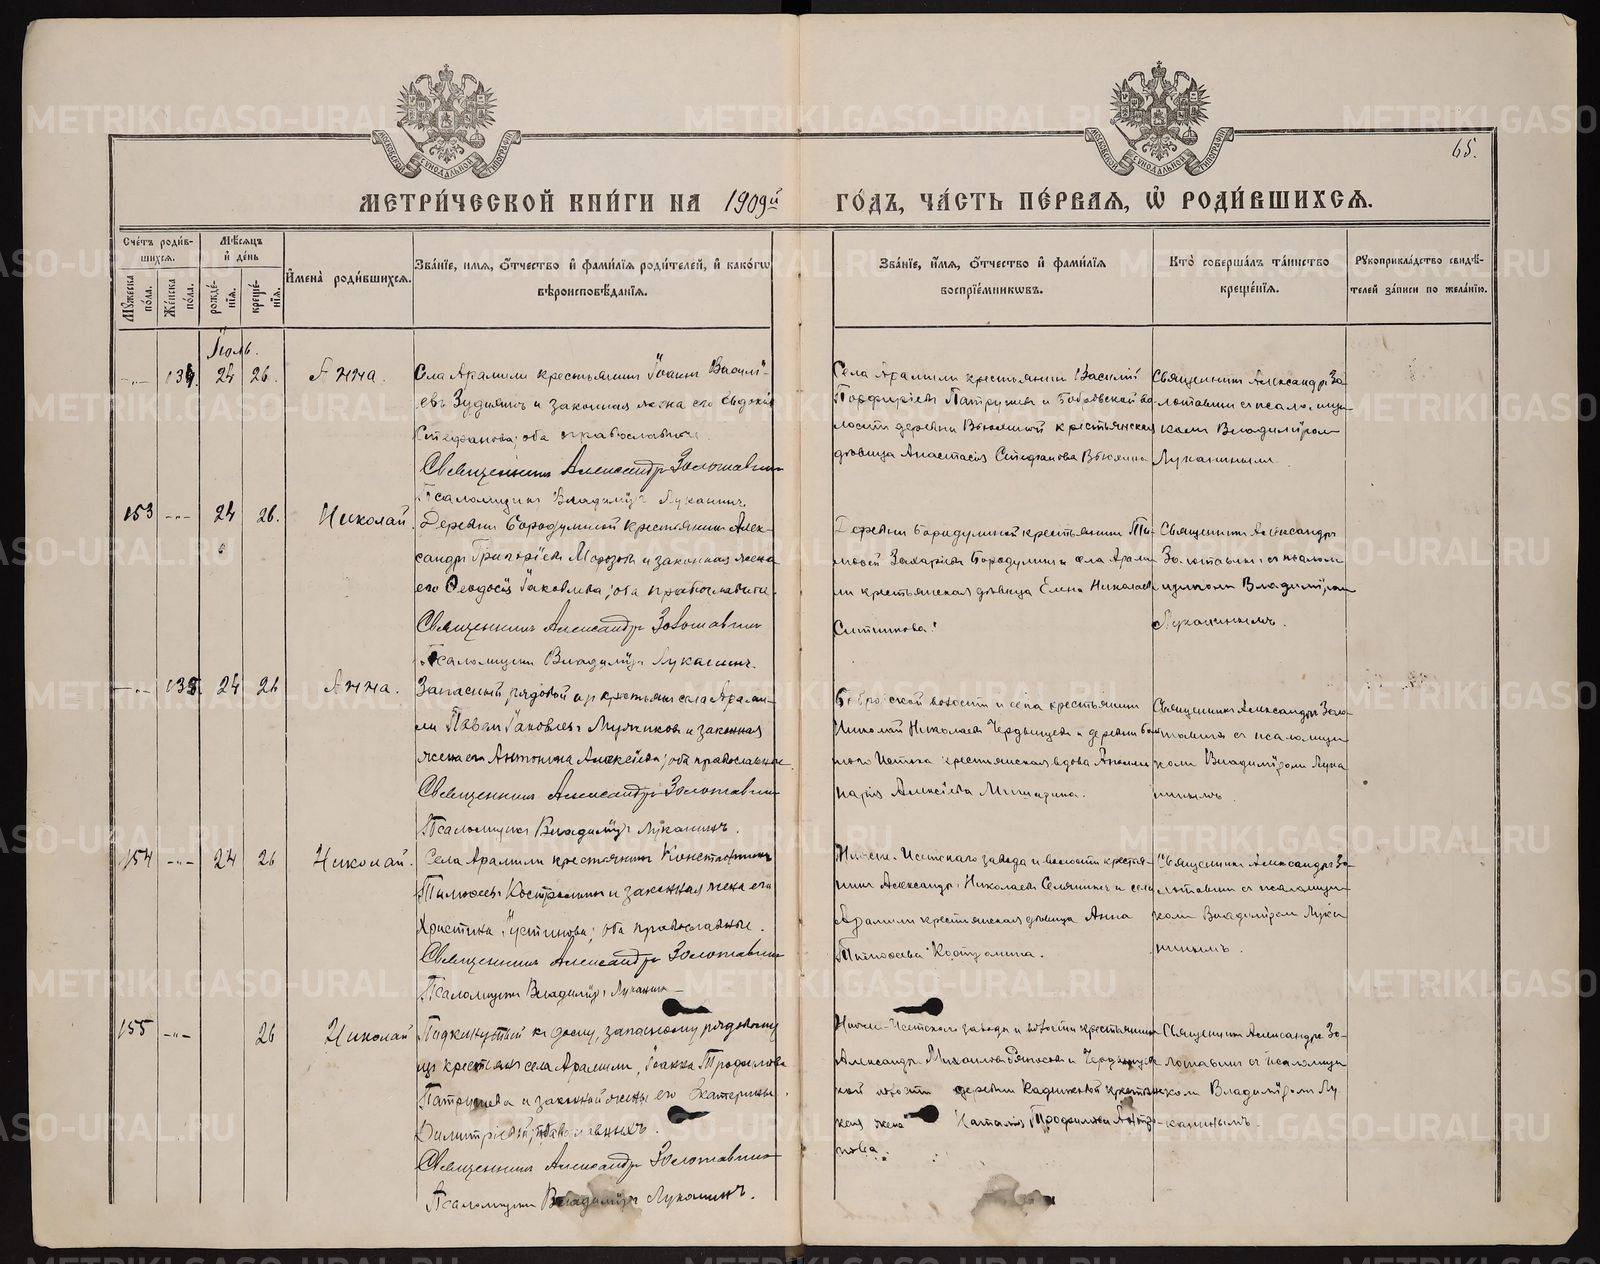 65.
МЕТРИ́ЧЕСКОЙ КНИ́ГИ НА 1909й ГО́ДЪ, ЧА́СТЬ ПЕ́РВАЯ, Ѡ҆ РОДИ́ВШИХСЯ.
Сче́тъ роди́в-
шихся.
Мꙋ́жеска по́ла.
Же́нска по́ла.
Мѣ́сяцъ и҆ де́нь
рожде́-
нїя.
креще́-
нїя.
И҆мена̀ роди́вшихся.
Зва́нїе, и҆мя, ѻ҆́тчество и҆ фами́лїя роди́телей, и҆ како́гѡ
вѣроисповѣ́данїя.
Зва́нїе, и҆́мя, ѻ҆́тчество и҆ фами́лїя
воспрїе́мникѡвъ.
Кто̀ соверша́лъ та́инство
креще́нїя.
Рꙋкоприкла́дство свидѣ́-
телей за́писи по жела́нїю.
Іюль.
134. 24 26. Анна.
Села Арамили крестьянинъ Іоаннъ Василь-
евъ и законная жена его Евдокія
Стефанова; оба православные.
Священникъ Александръ Золотавинъ
Псаломщикъ Владиміръ Луканинъ.
Села Арамили крестьянинъ Василій
Порфирьевъ Патрушевъ и Бобровской во-
лости деревни крестьянская
дѣвица Анастасія Стефанова
Священникъ Александръ Зо-
лотавинъ съ псаломщи-
комъ Владиміромъ
Луканинымъ.
153 24 26. Николай.
Деревни крестьянинъ Алек-
сандръ Григорьевъ Морозовъ и законная жена
его Ѳеодосія Іаковлева; оба православные.
Священникъ Александръ Золотавинъ
Псаломщикъ Владиміръ Луканинъ.
Деревни крестьянинъ Ти-
моѳей Захаріевъ и села Арами-
ли крестьянская дѣвица Елена Николаева
Ситникова.
Священникъ Александръ
Золотавинъ съ псалом-
щикомъ Владиміромъ
Луканинымъ.
135 24 26 Анна.
Запасный рядовой изъ крестьянъ села Арами-
ли Павелъ Іаковлевъ и законная
жена его Антонина Алексѣева; оба православные.
Священникъ Александръ Золотавинъ
Псаломщикъ Владиміръ Луканинъ.
Бобровской волости и села крестьянинъ
Николай Николаевъ и деревни
Истока крестьянская вдова
Алексѣева
Священникъ Александръ Золо-
тавинъ съ псаломщи-
комъ Владиміромъ Лука-
нинымъ.
154 24 26 Николай.
Села Арамили крестьянинъ Константинъ
Тимоѳеевъ и законная жена его
Христина Іустинова; оба православные.
Священникъ Александръ Золотавинъ
Псаломщикъ Владиміръ Луканинъ
Нижне-Исетскаго завода и волости крестья-
нинъ Александръ Николаевъ и села
Арамили крестьянская дѣвица Анна
Тимоѳеева
Священникъ Александръ Зо-
лотавинъ съ псаломщи-
комъ Владиміромъ Лука-
нинымъ.
155 26 Николай
Подкинутый къ дому, запасному рядовому
изъ крестьянъ села Арамили, Іоанна Трофимова
Патрушева и законной жены его Екатерины
Димитріевой, православныхъ.
Священникъ Александръ Золотавинъ
Псаломщикъ Владиміръ Луканинъ.
Нижне-Исетскаго завода и волости крестьянинъ
Александръ Михаиловъ и
кой волости деревни крестьян-
ская жена Наталія Трофимова
нова.
Священникъ Александръ Зо-
лотавинъ съ псаломщи-
комъ Владиміромъ Лу-
канинымъ.